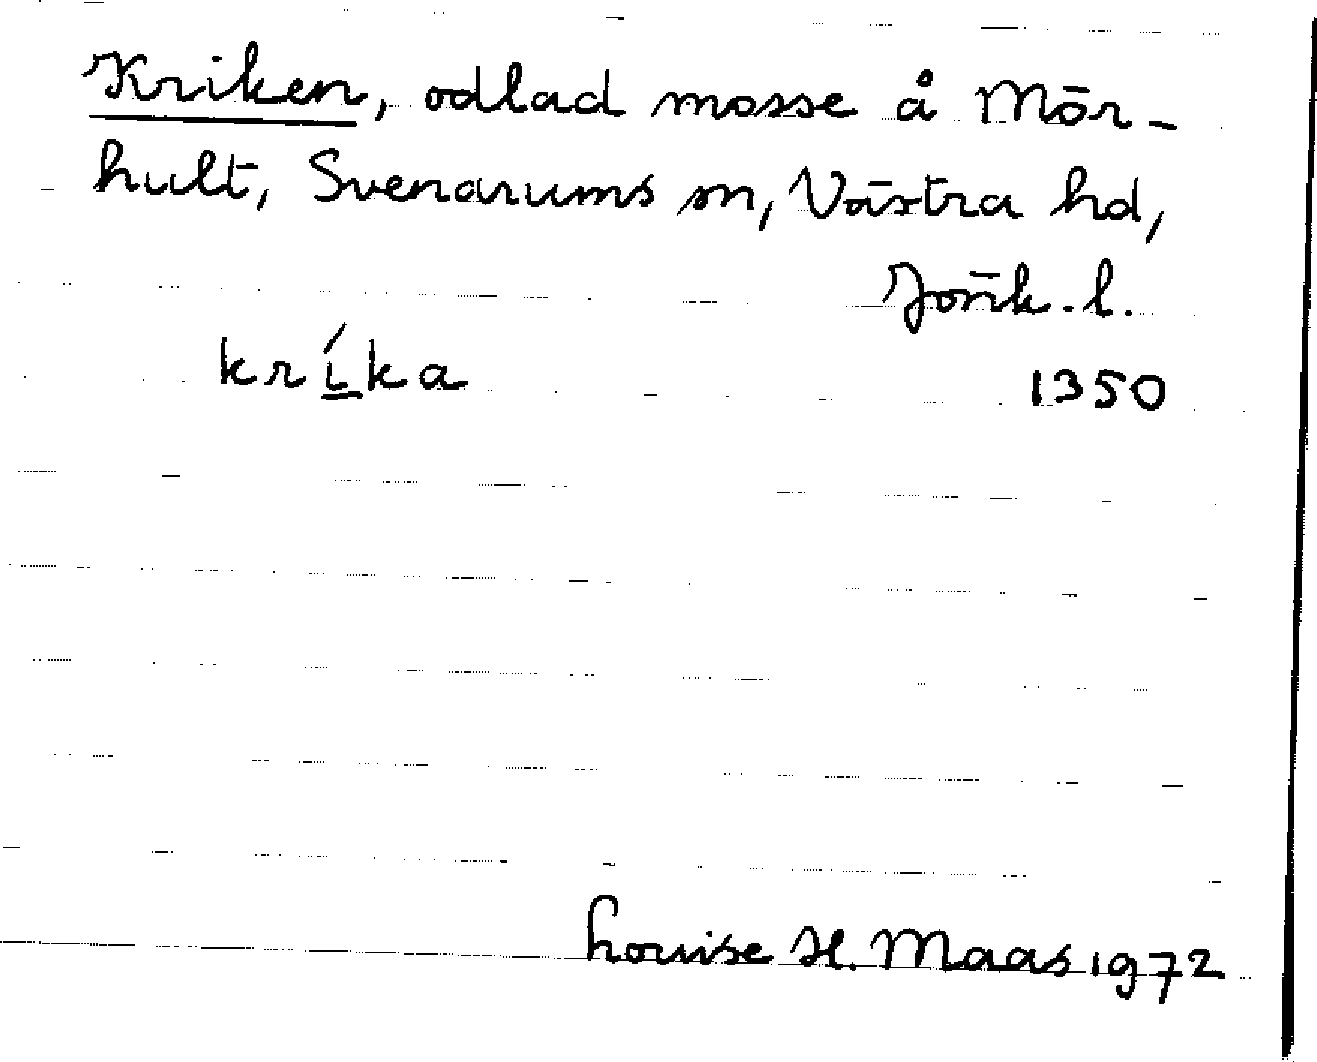 Kriken, odlad mosse å Mör-
hult, Svenarums sn, Västra hd,
Jönk. l.
krí̲ka
1350
Louise H. Maas 1972